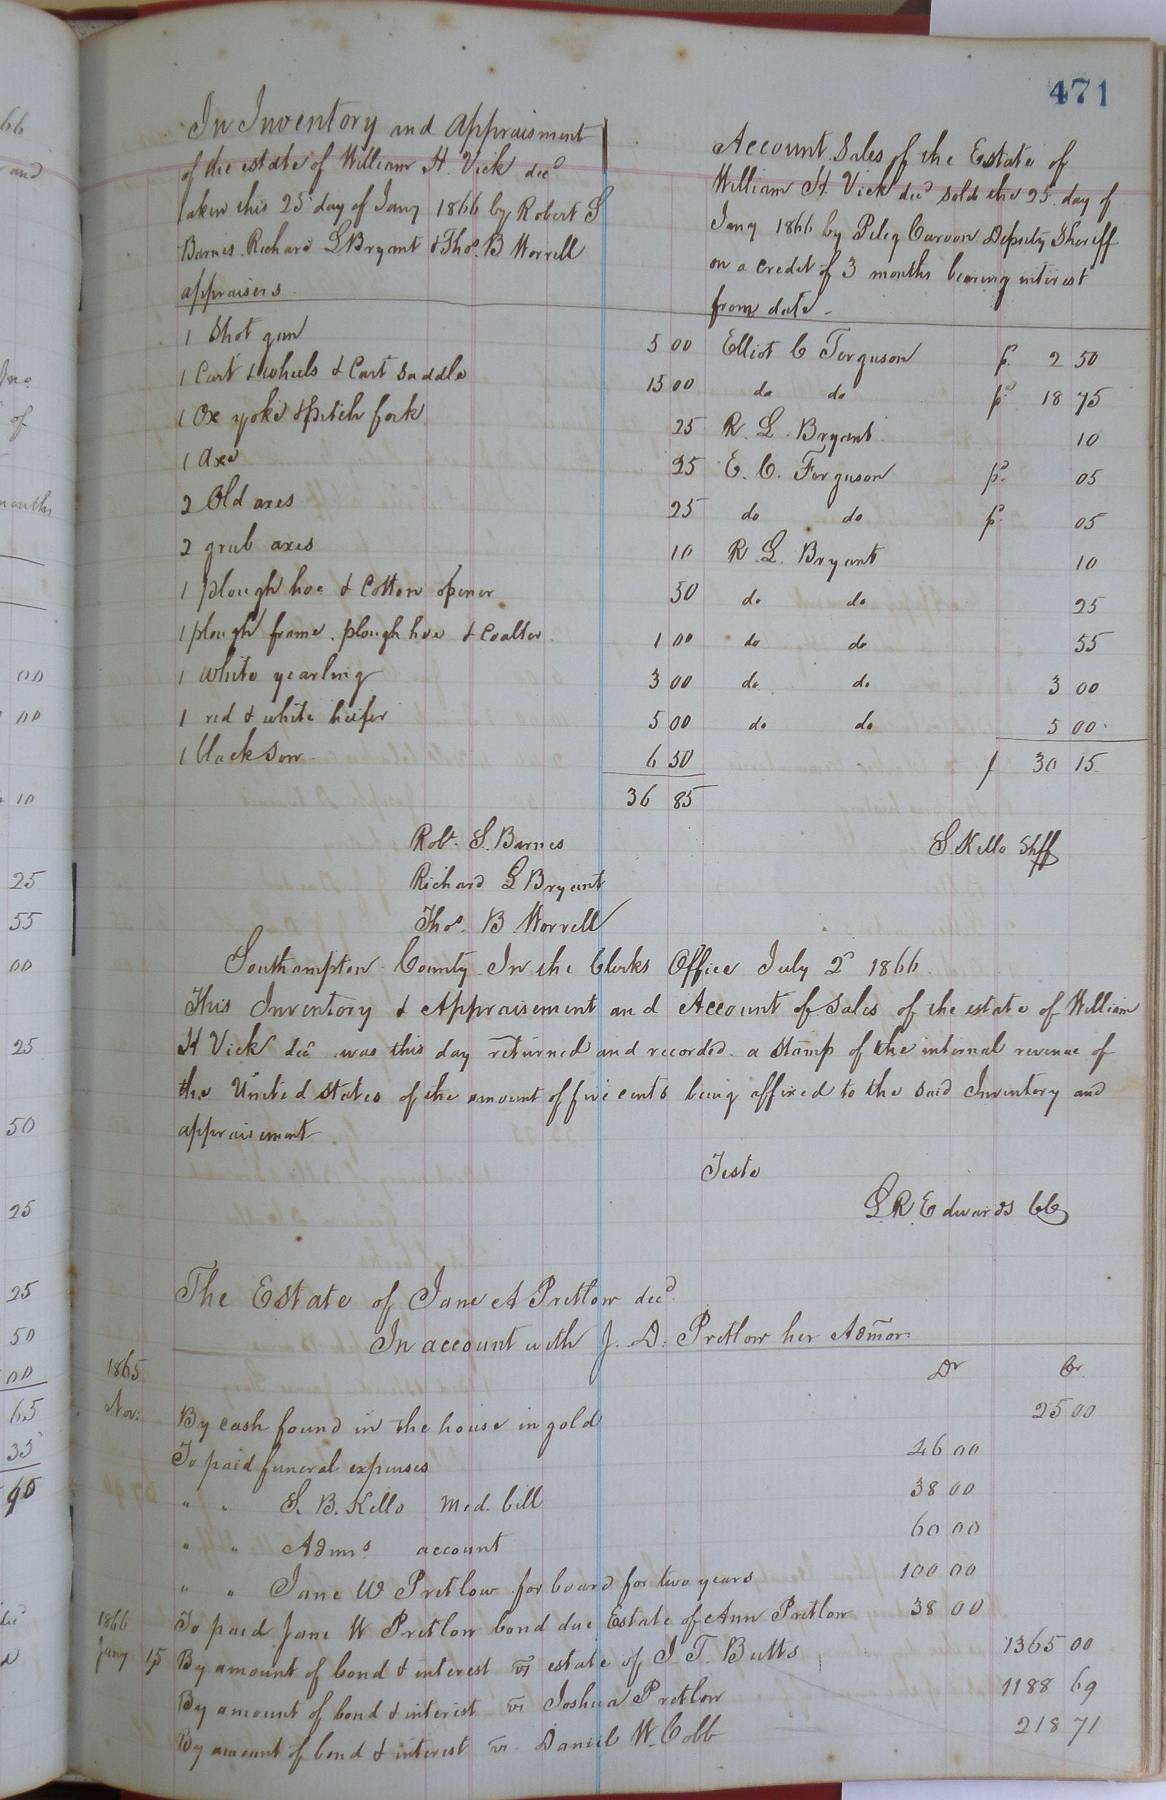 471
In Inventory and Appraisment
of the estate of William H. Vick decd
taken this 25 day of Jany 1866 by Robert S
Barnes. Richard L Bryant & Thos. B Worrell
appraisers
Account Sales of the Estate of
William H. Vick decd sold the 25 day of
Jany 1866 by Deputy Sheriff
on a credit of 3 months bearing interest
from date -
1 Shot gun 5 00 Elliot C Ferguson pd 2 50
1 Cart & wheels & Cart Saddle 15 00 do do pd 18 75
1 Ox yoke & pitch fork 25 R. L. Bryant 10
1 Axe 25 E. C. Ferguson pd 05
2 Old axes 25 do do pd 05
2 grub axes 10 R. L. Bryant 10
1 plough hoe & Cotton opener 50 do do 25
1 plough frame. plough hoe & Coalter 1 00 do do 55
1 white yearling 3 00 do do 3 00
1 red & white heifer 5 00 do do 5 00
1 black Sow 6 50 30 15
36 85
Robt. S. Barnes S. Kello Shff
Richard L Bryant
Thos. B Worrell
Southampton County In the Clerks Office July 2d 1866
This Inventory & Appraisement and Account of Sales of the estate of William
H Vick decd was this day returned and recorded a stamp of the internal revenue of
the United States of the amount of five cents being affixed to the said Inventory and
appraisement
Teste
L. R. Edwards CC
The Estate of Jane A Pretlow decd
In account with J. D. Pretlow her Admor.
1865 Dr Cr
Nov. By cash found in the house in gold 25 00
To paid funeral expenses 46 00
" " S. B. Kello Med. bill 38 00
" " Adms account 60 00
" " Jane W Pretlow for board for two years 100 00
1866 To paid Jane W Pretlow bond due Estate of Ann Pretlow 38 00
Jany 15 By amount of bond & interest vs estate of J. T. Butts 1365 00
By amount of bond & interest vs Joshua Pretlow 1188 69
By amount of bond & interest vs Daniel W. Cobb 218 71